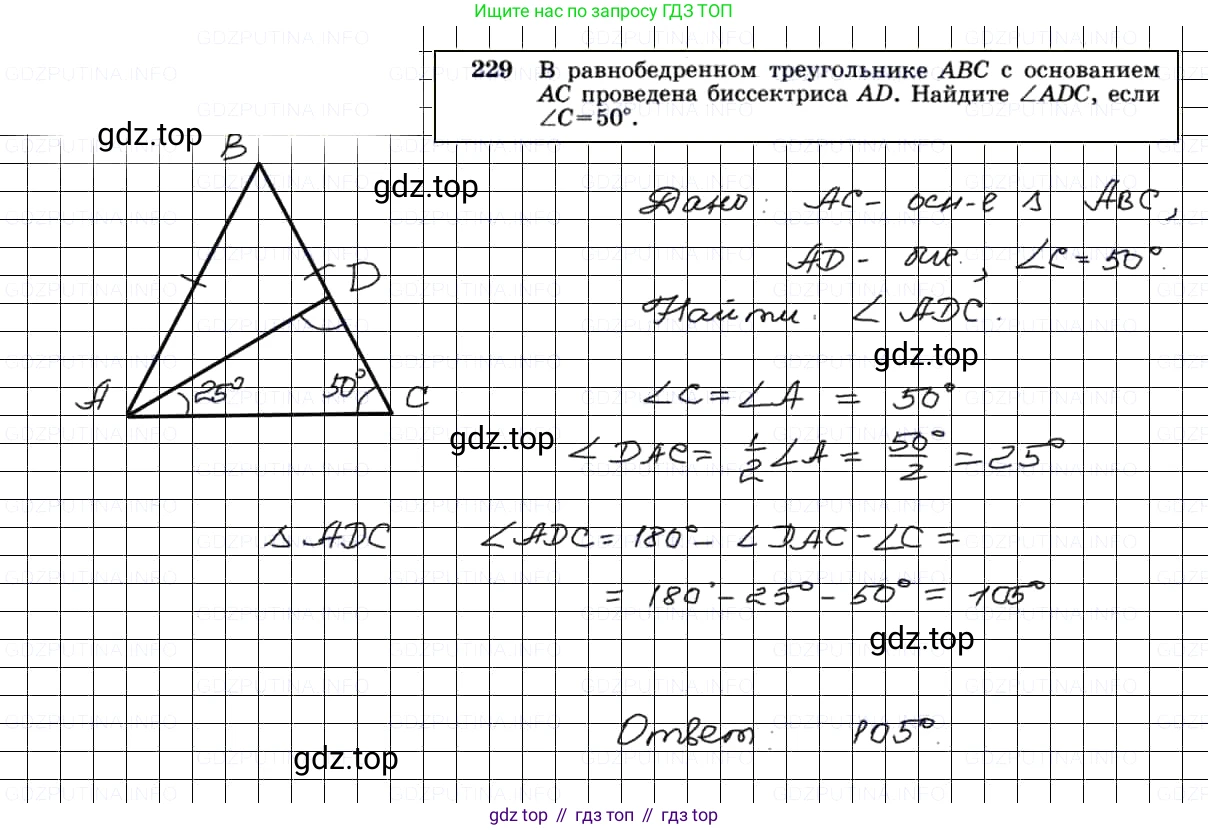 Ищите нас по запросу ГДЗ ТОП
229 В равнобедренном треугольнике ABC с основанием
AC проведена биссектриса AD. Найдите ∠ADC, если
∠C=50°.
gdz.top
B
gdz.top
Дано: AC- осн-е Δ ABC,
D
AD- бис., ∠C=50°.
Найти: ∠ ADC.
gdz.top
A
25°
50°
C
∠C=∠A = 50°
gdz.top
∠DAC= 1/2 ∠A = 50°/2 =25°
Δ ADC ∠ADC= 180°- ∠DAC-∠C=
= 180°-25°-50°= 105°
gdz.top
Ответ: 105°.
gdz.top
gdz top // гдз топ // gdz top
GDZPUTINA.INFO